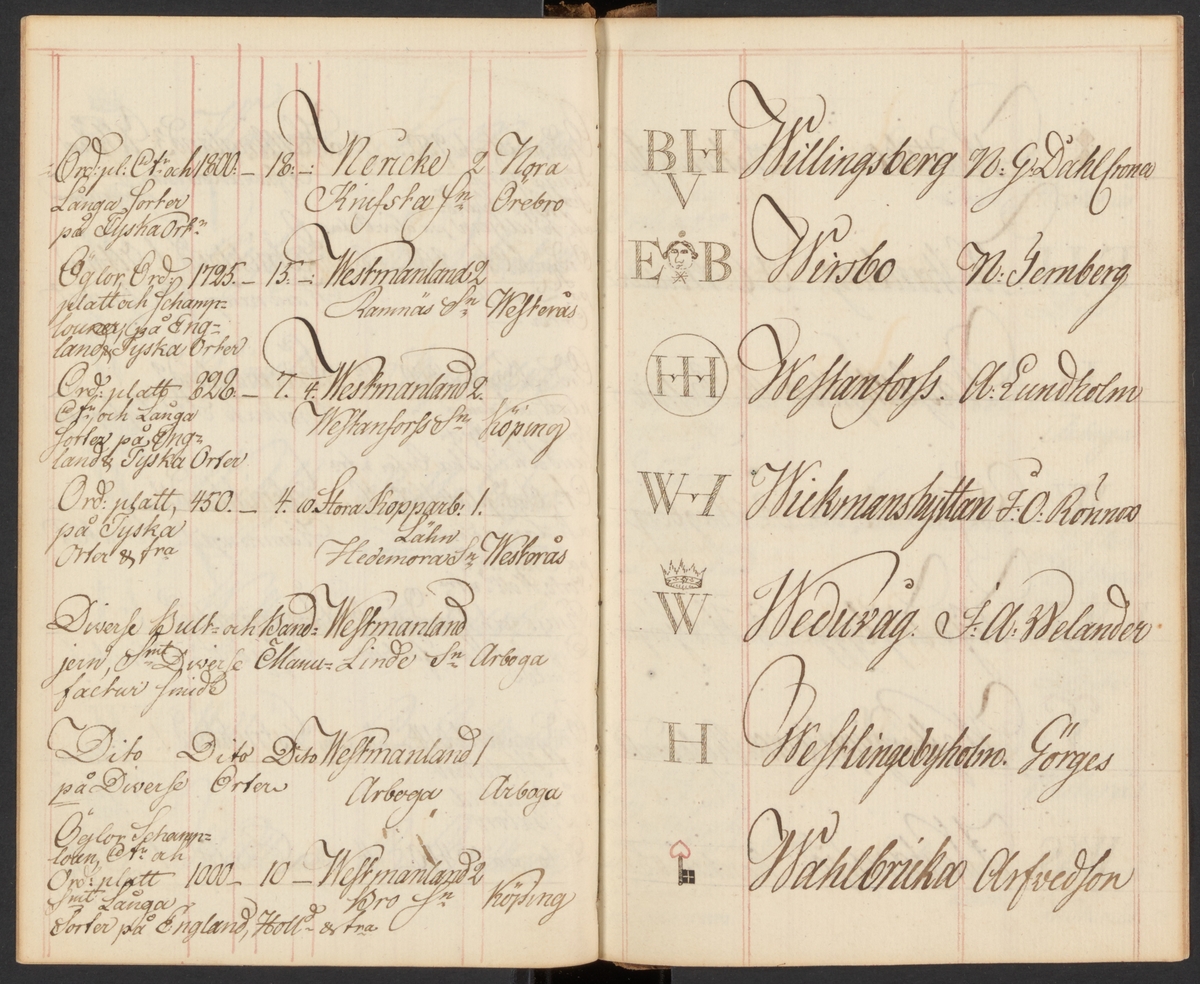 Ord: pl: Ct:r och 1800. – 18. –: Nericke 2 Nora
Långa Sorter Knifsta Sn Örebro
på Tyska Ort:r
Öglor, Ord: 1725. – 15. –: Westmanland 2
platt och Schamp=
louner, på Eng= Ramnäs Sn Westerås
land & Tyska Orter
Ord: platt 828. – 7. 4. Westmanland 2.
Ct:r och Långa Westanforss Sn Köping
Sorter på Eng=
land & Tyska Orter
Ord: platt, 450. – 4. 10. Stora Kopparb: 1.
på Tyska Lähn
Orter & tra Hedemora Sn Westerås
Diverse Bult- och Band= Westmanland
jern, Smt Diverse Manu= Linde Sn Arboga
factur Smide
Dito Dito Dito Westmanland 1
på Diverse Orter Arboga Arboga
Öglor, Schamp=
loun, Ct:r och
Ord: platt 1000 – 10 – Westmanland 2
Smt Långa Bro Sn Köping
Sorter på England, Holld & tra
BH Willingsberg N: G: Dahlcrona
V
E B Wirsbo N: Jernberg
HH Westanforss. A: Lundholm
WH Wickmanshyttan F. O. Rönnow
W Wedwåg. F: A: Welander
H Westlingebyholm. Görges
Wahlbricka Arfvedson